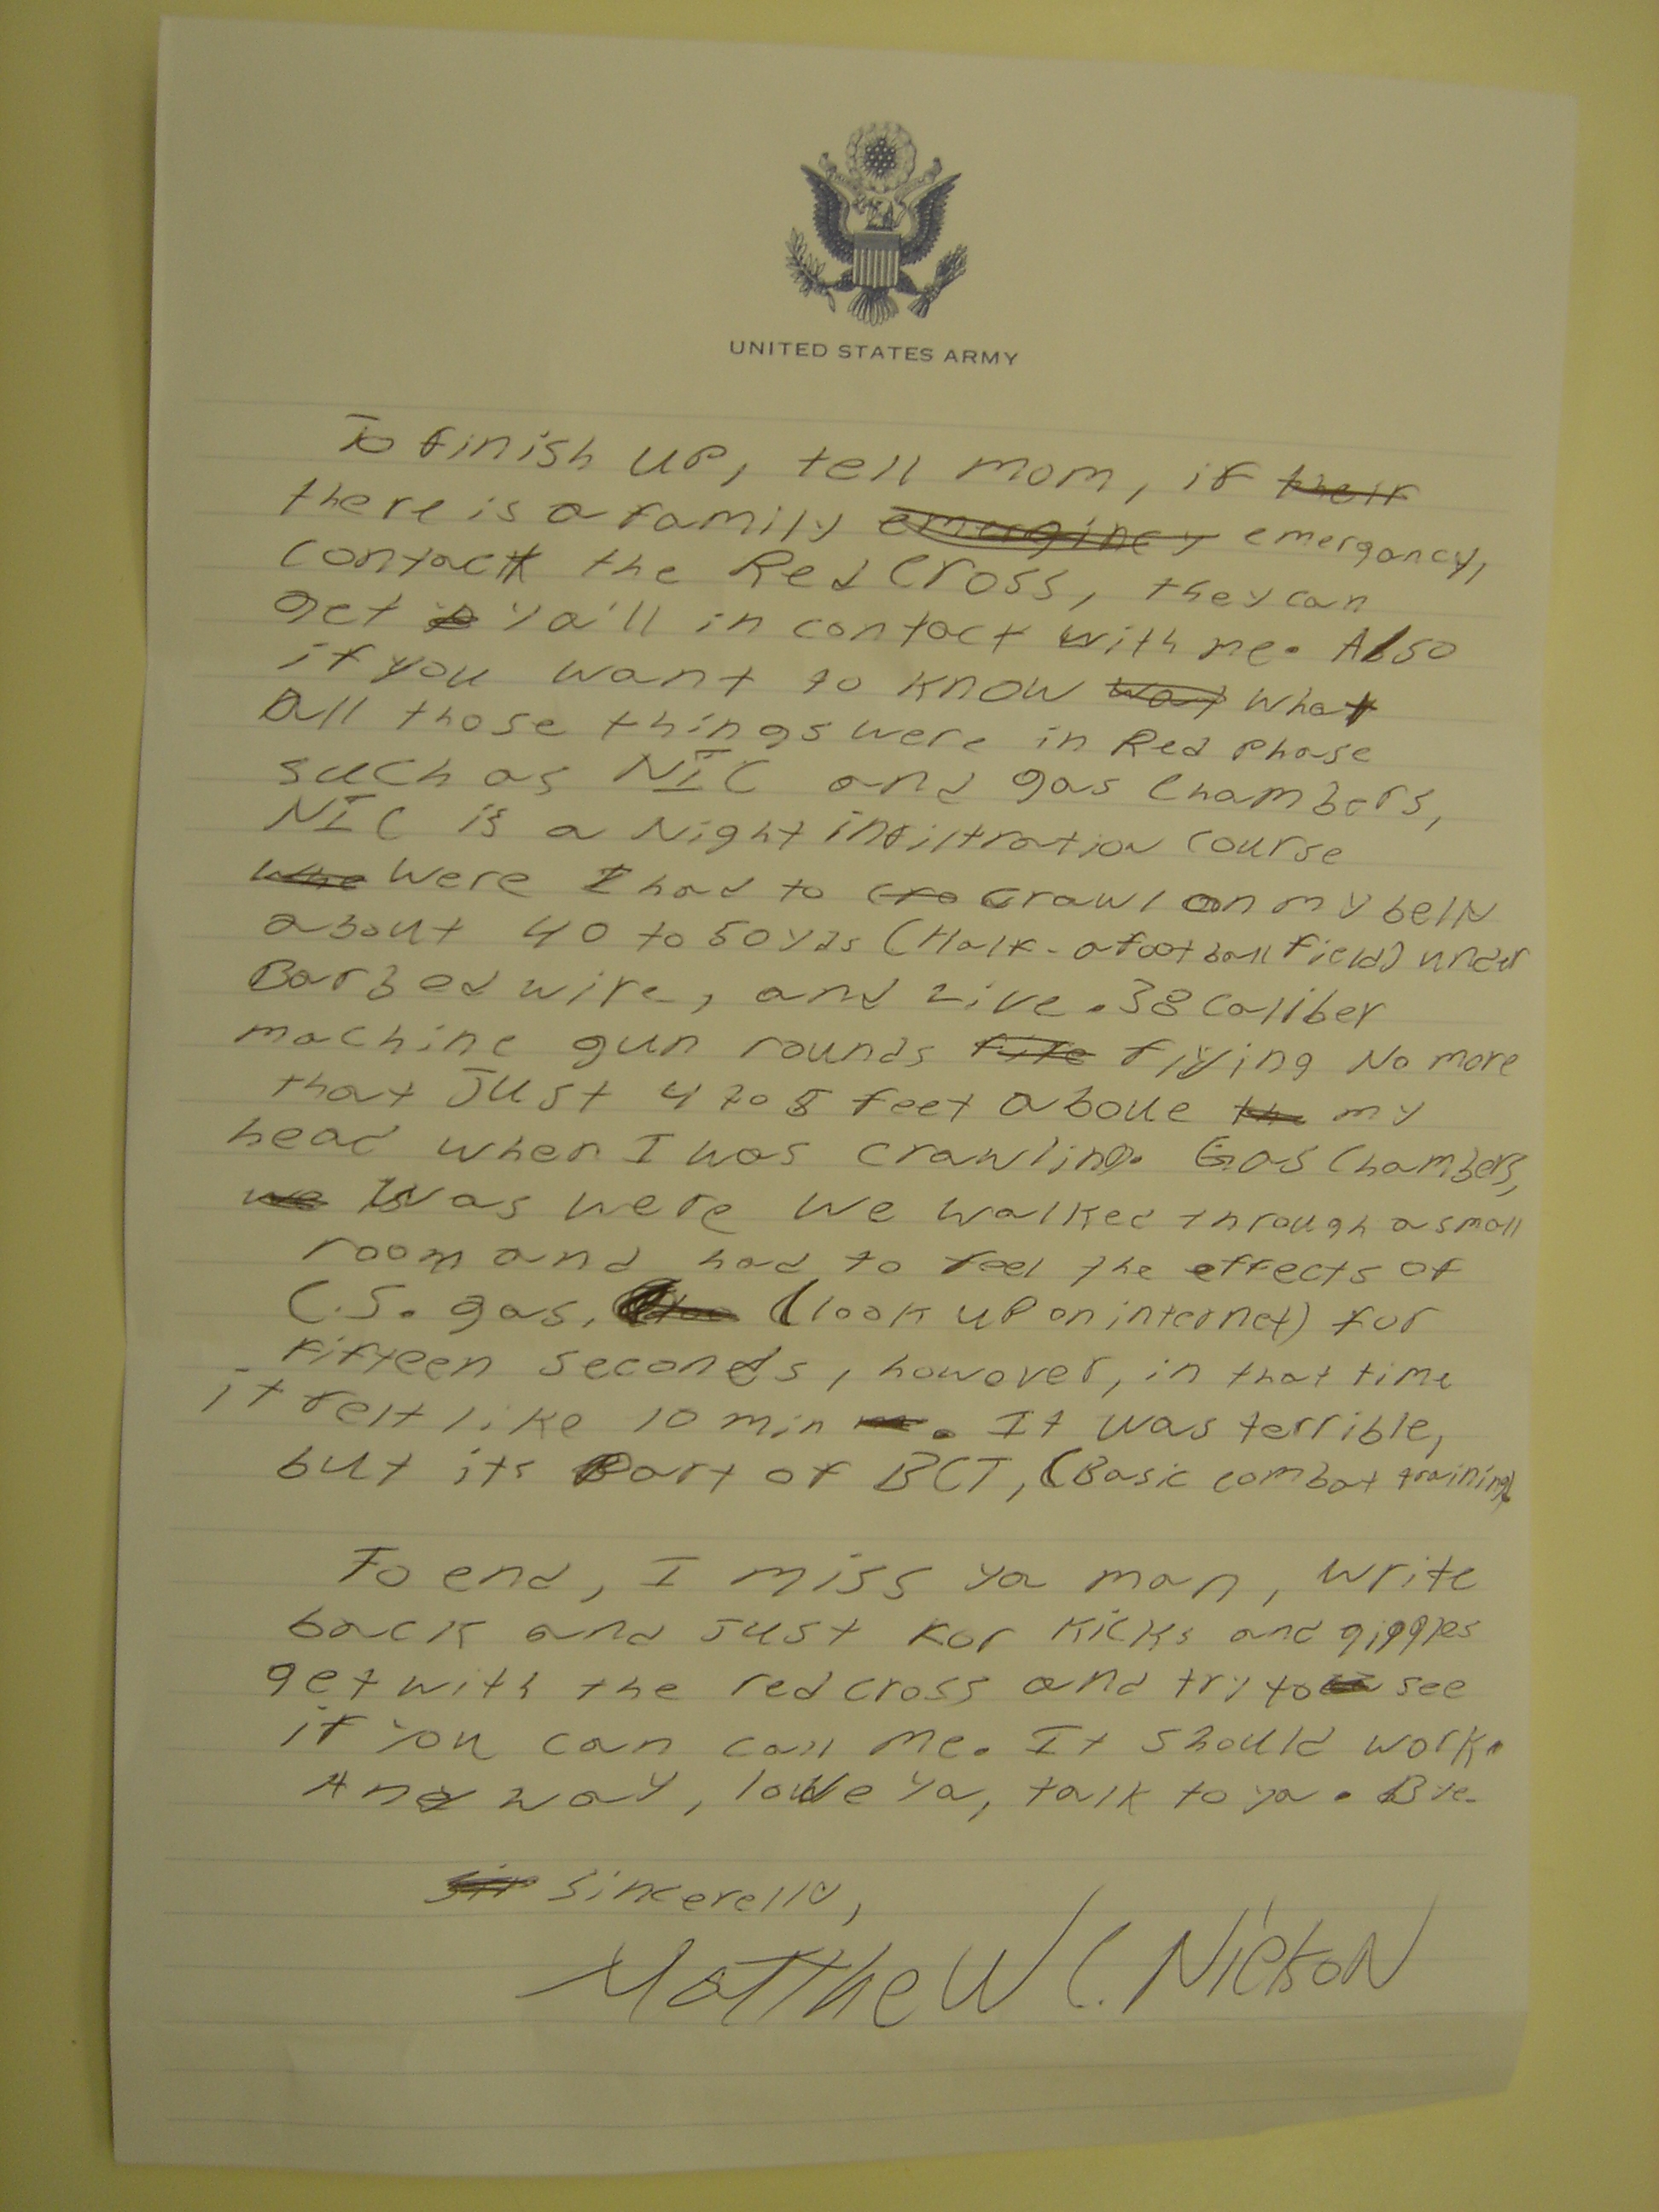 UNITED STATES ARMY
To finish up, tell mom, if their
there is a family emerginey emergancy,
contact the Red Cross, they can
get ya'll in contact with me. Also
if you want to know wat what
all those things were in Red Phase
such as NIC and gas Chambers,
NIC is a Night infiltration course
whe were I had to cra crawl on my belly
about 40 to 50 yds (Half-a football field) under
Barbed wire, and Live .38 caliber
machine gun rounds fite flying No more
that Just 4 to 5 feet above th my
head when I was crawling. Gas Chambers,
we Was were we walked through a small
room and had to feel the effects of
C.S. gas, (look up on internet) for
fifteen seconds, however, in that time
it felt like 10 min. It was terrible,
but its Part of BCT, (Basic combat training)
To end, I miss ya man, write
back and Just for kicks and giggles
get with the red cross and try to see
if you can call me. It should work.
Any way, love ya, talk to ya. Bye.
sin sincerelly,
Matthew C. Nickson